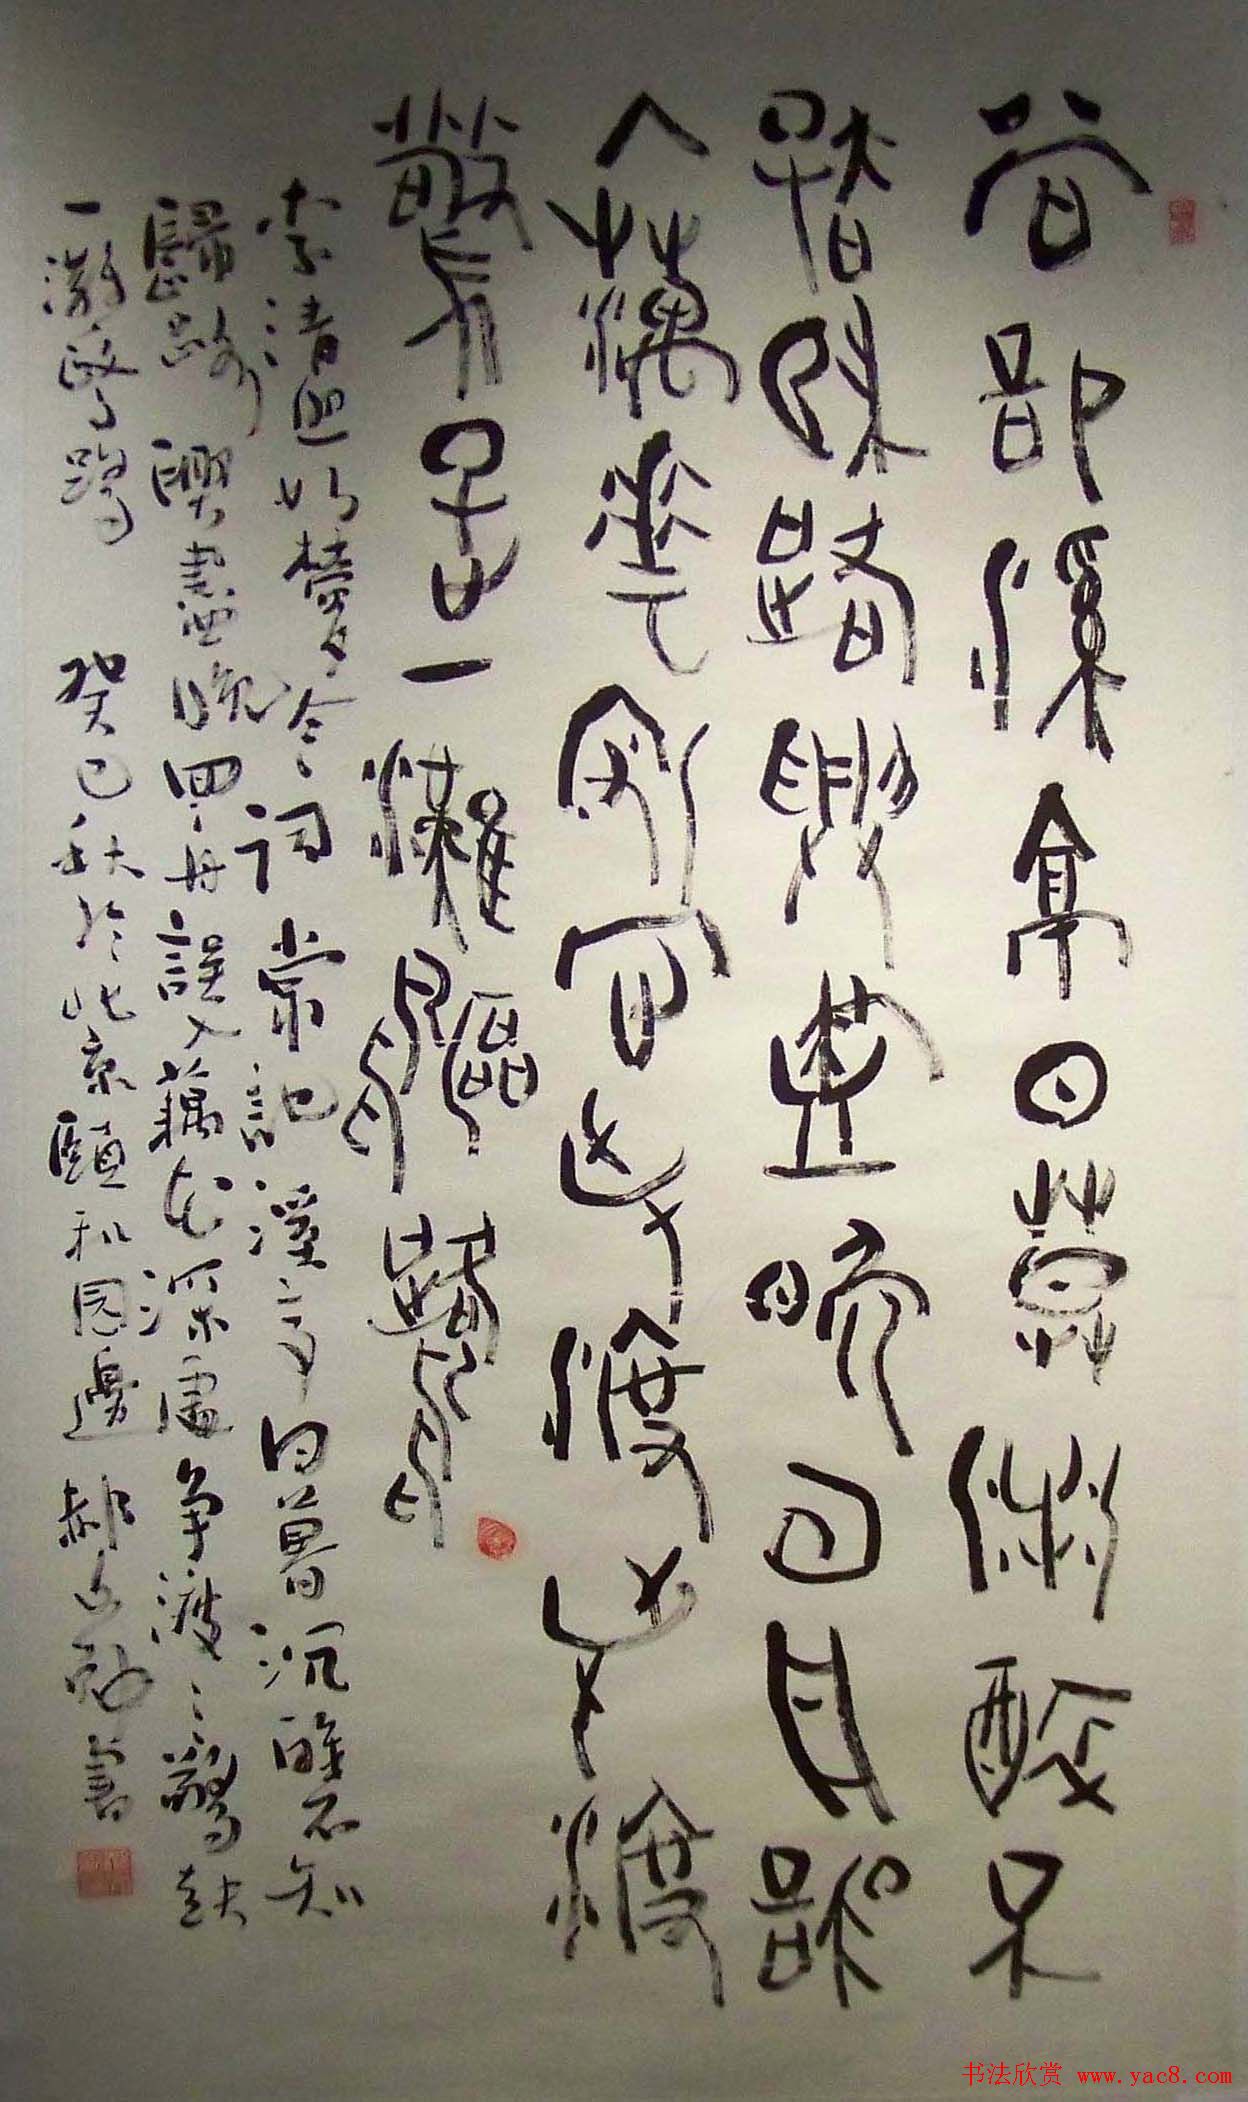 常記溪亭日暮沉醉不
知歸路興盡晚回舟誤
入藕花深處爭渡爭渡
驚起一灘鷗鷺
李清照如夢令詞 常記溪亭日暮沉醉不知
歸路 興盡晚回舟誤入藕花深處爭渡〻〻驚起
一灘鷗鷺 癸巳秋於北京頤和園邊 郝文勉書
书法欣赏 www.yac8.com